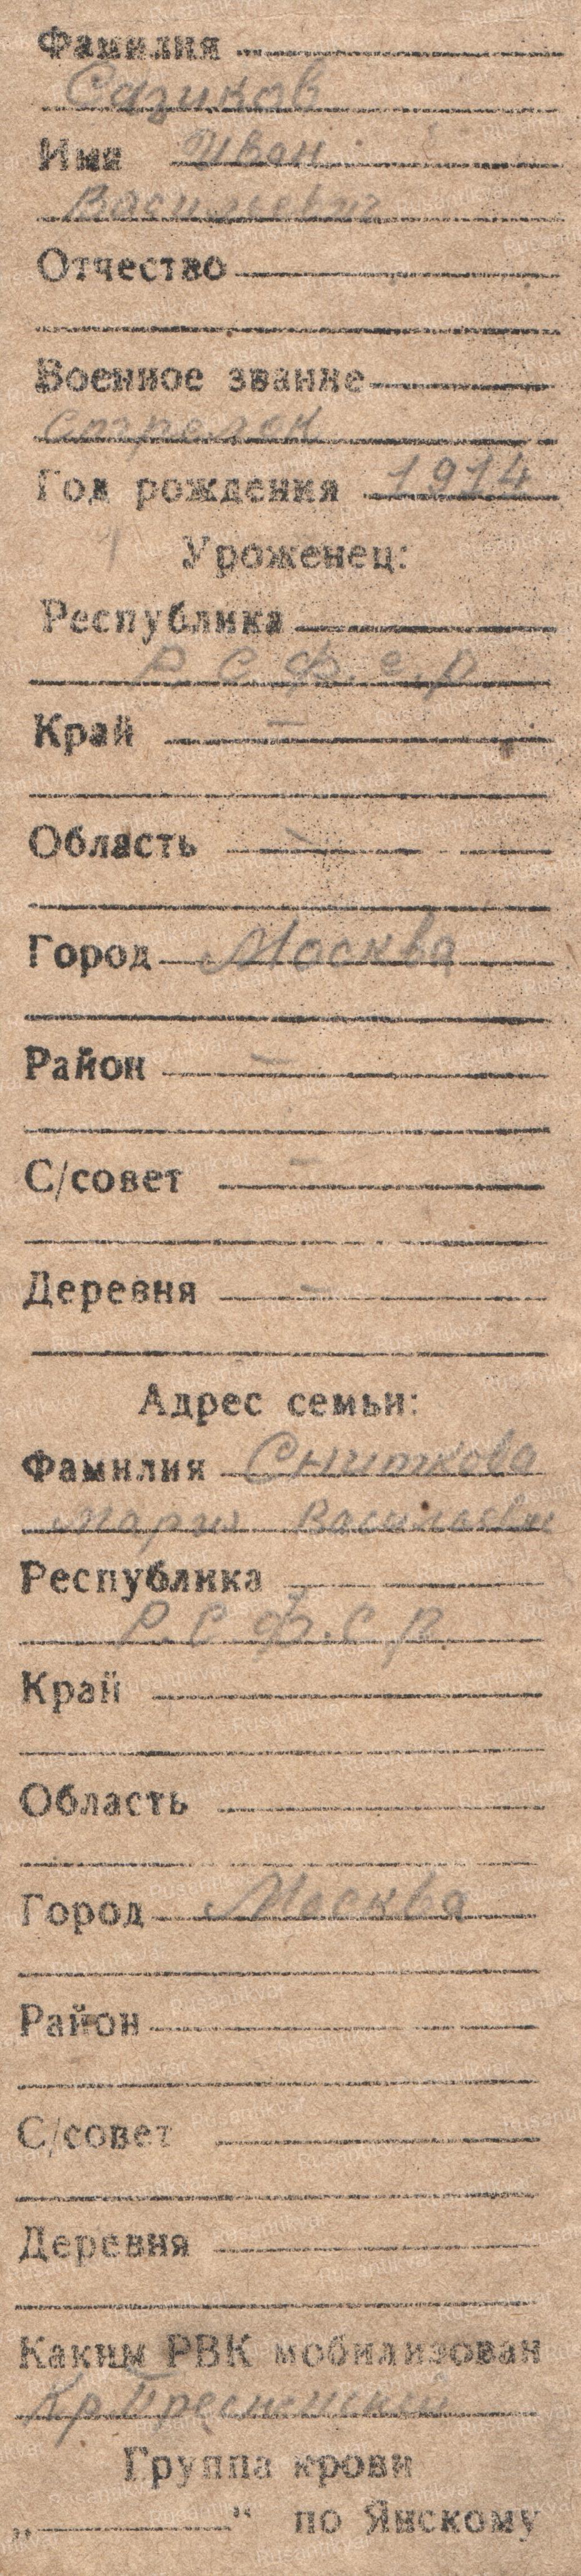 Фамилия
Сазиков
Имя Иван
Васильевич
Отчество
Военное звание
Стрелок
Год рождения 1914
Уроженец:
Республика
Р. С. Ф. С. Р
Край —
Область —
Город Москва
Район —
С/совет —
Деревня —
Адрес семьи:
Фамилия Сниткова
Мария Васильевн
Республика
Р. С. Ф. С. Р.
Край
Область
Город Москва
Район
С/совет
Деревня
Каким РВК мобилизован
Кр. Пресненский
Группа крови
„ " по Янскому